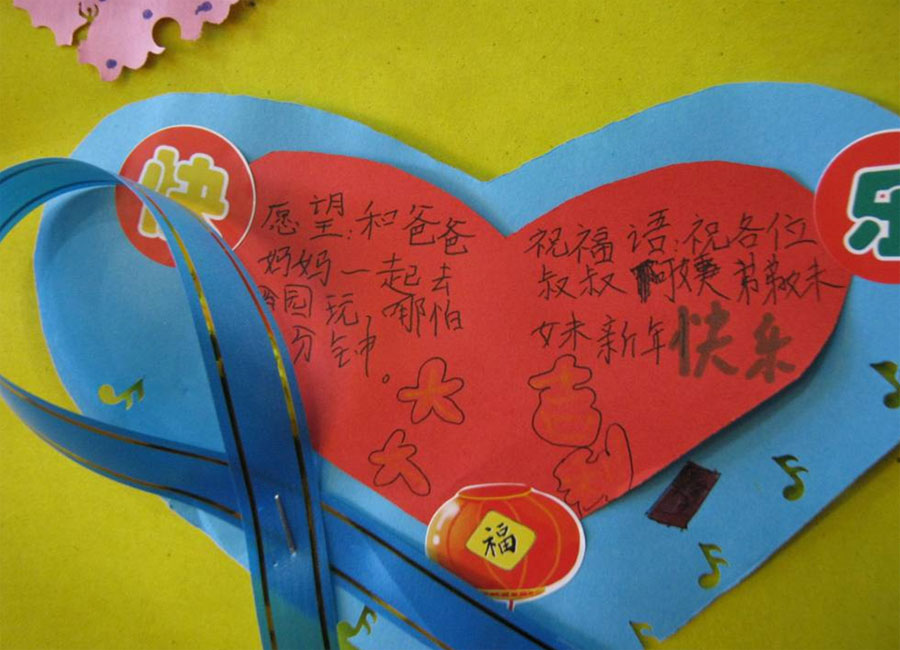 快
乐
愿望:和爸爸
妈妈一起去
园玩,哪怕
分钟。
祝福语:祝各位
叔叔阿姨弟弟妹
妹新年快乐
大吉
大利
福